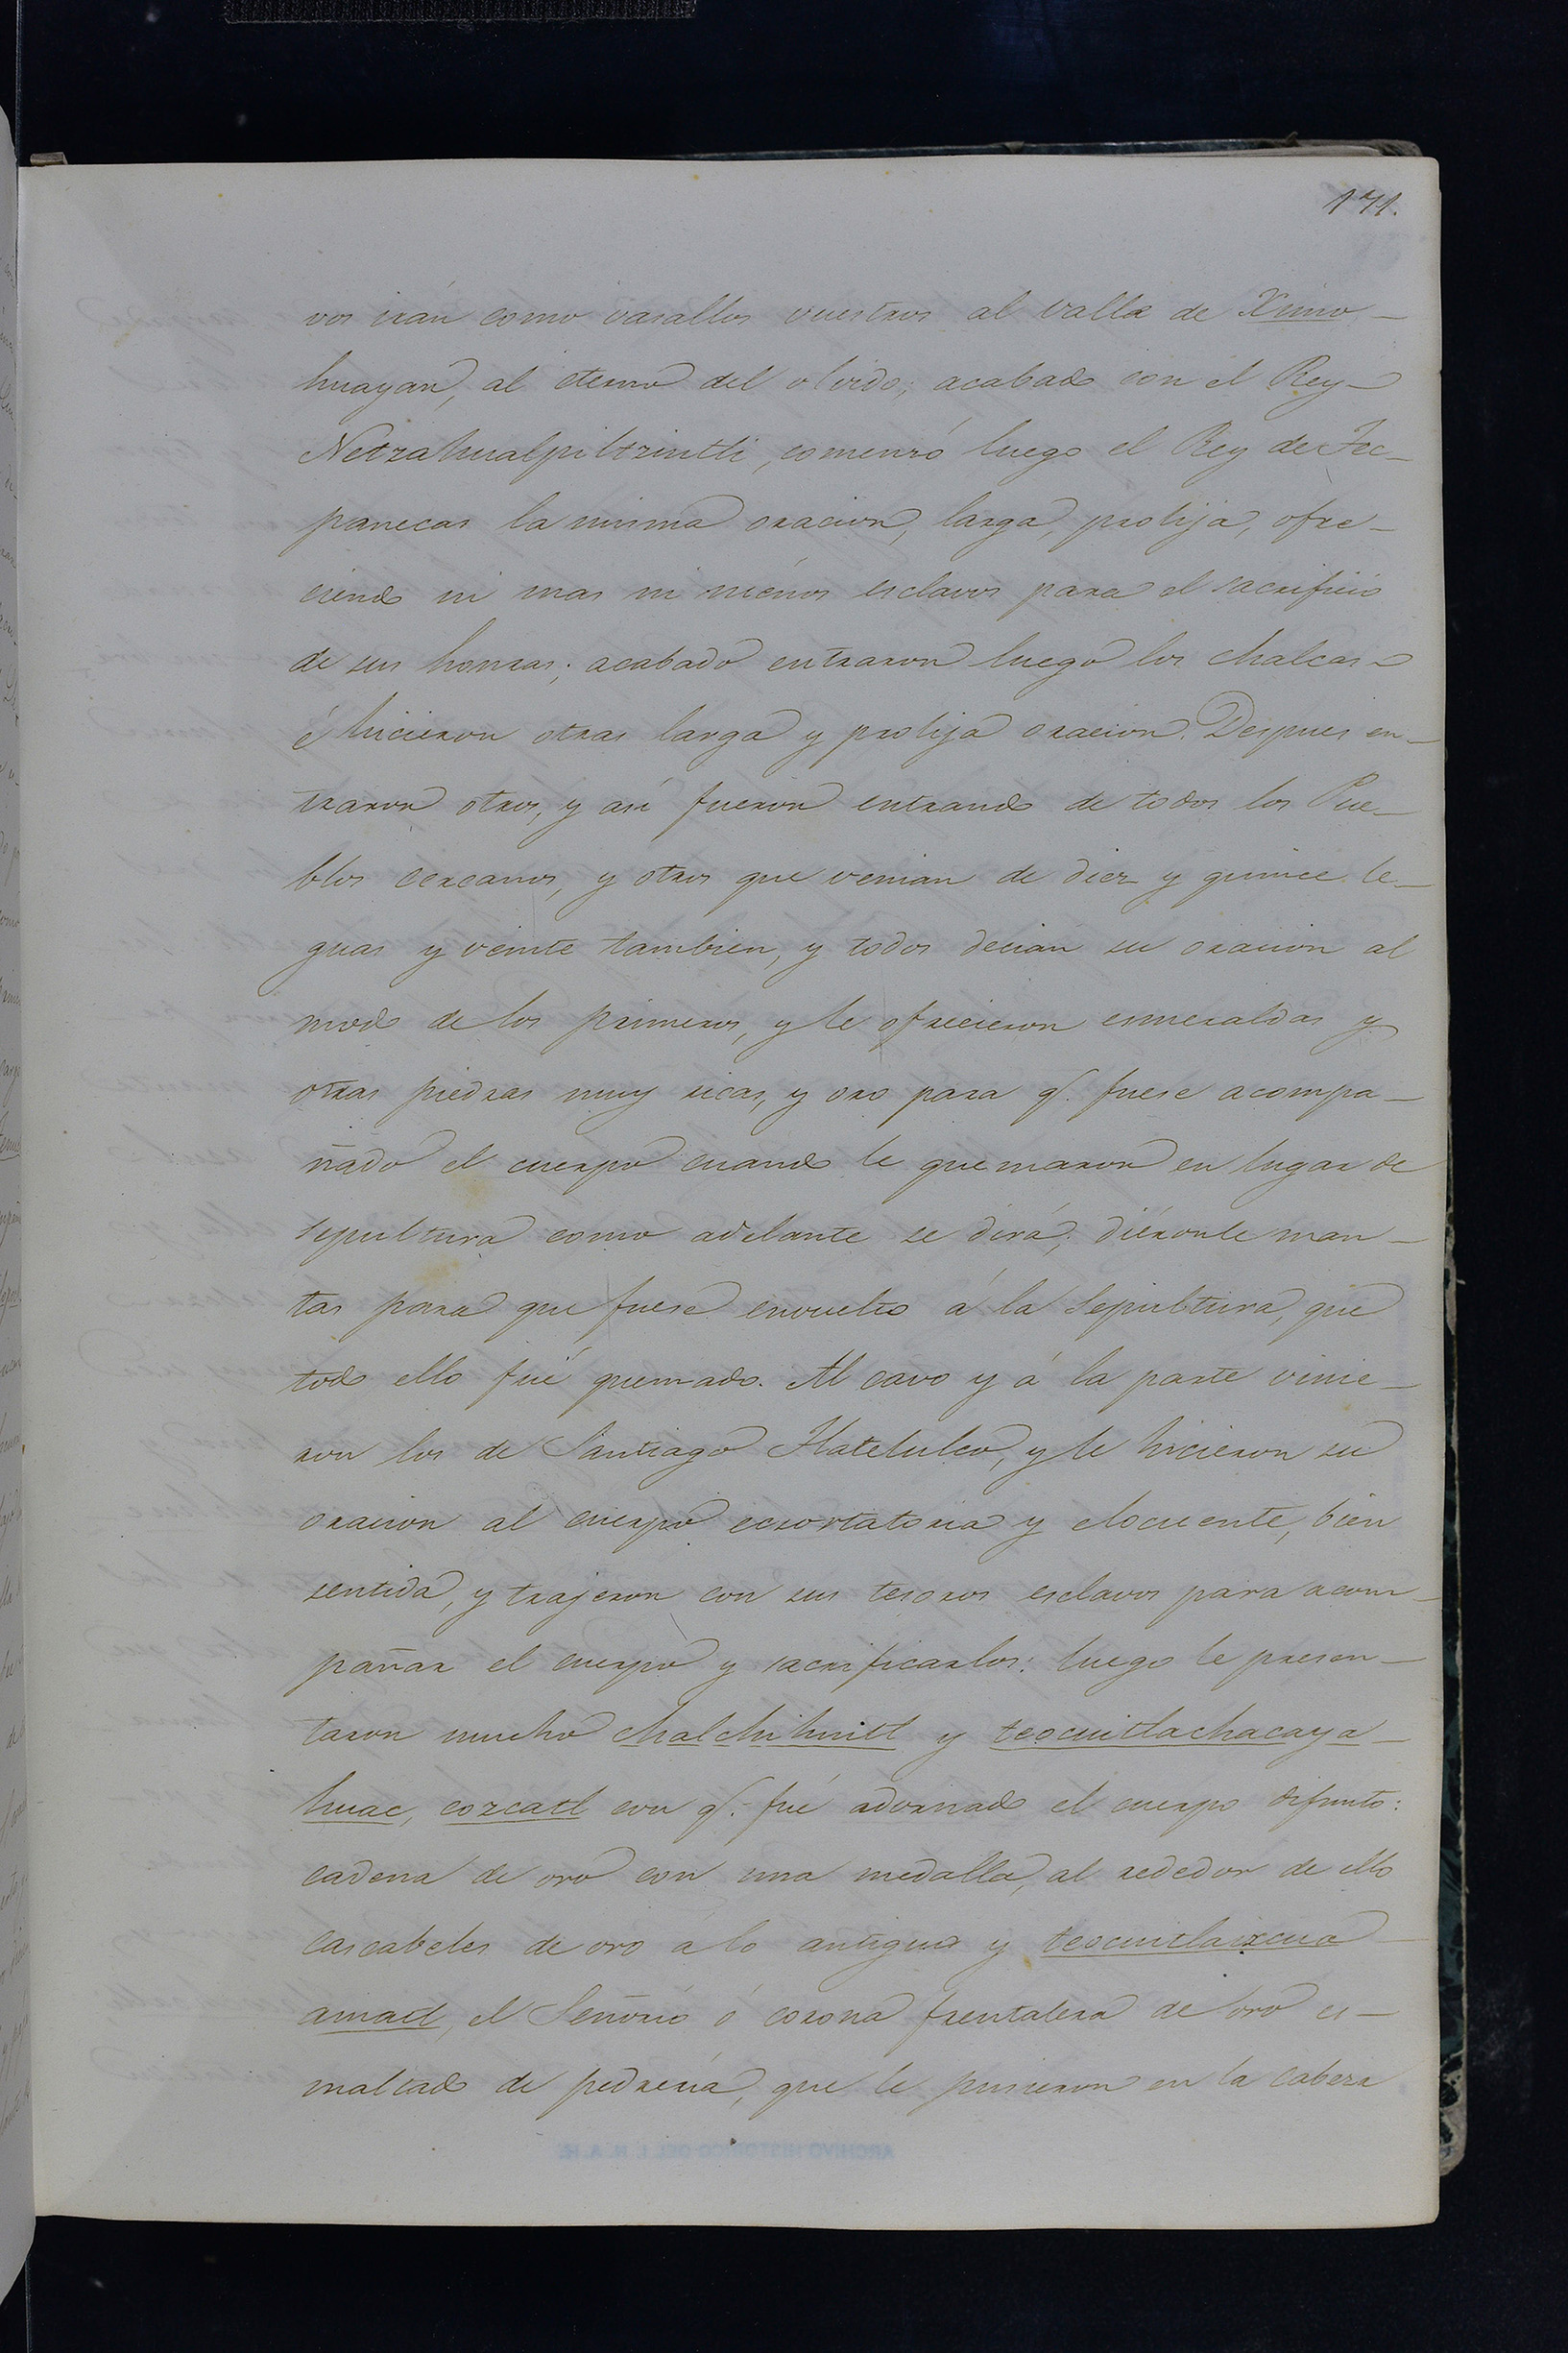 171.
vos irán como vasallos vuestros al valle de Ximo-
huayan, al eterno del olvido; acabado con el Rey
Netzahualpiltzintli, comenzó luego el Rey de Tec-
panecas la misma oracion, larga, prolija, ofre-
ciendo ni mas ni ménos esclavos para el sacrificio
de sus honras; acabado entraron luego los chalcas
é hicieron otras larga y prolija oracion. Despues en-
traron otros, y asi fueron entrando de todos los Pue-
blos cercanos, y otros que venian de diez y quince le-
guas y veinte tambien, y todos decian su oracion al
modo de los primeros, y le ofrecieron esmeraldas y
otras piedras muy ricas, y oro para q.e fuese acompa-
ñado el cuerpo cuando le quemaron en lugar de
sepultura como adelante se dirá; diéronle man-
tas para que fuese envuelto á la Sepultura, que
todo ello fué quemado. Al cavo y á la parte vinie-
ron los de Santiago Tlatelulco, y le hicieron su
oracion al cuerpo ecsortatoria y elocuente, bien
sentida, y trajeron con sus tesoros esclavos para acom-
pañar el cuerpo y sacrificarlos: luego le presen-
taron mucho chalchihuitl y teocuitlachacaya-
huac, cozcatl con q.e fué adornado el cuerpo difunto:
cadena de oro con una medalla, al rededor de ello
cascabeles de oro á lo antiguo y teocuitlaixcua
amatl, el Señorio ó corona frentalera de oro es-
maltado de pedreria, que le pusieron en la cabeza
ARCHIVO HISTORICO DEL I. N. A. H.